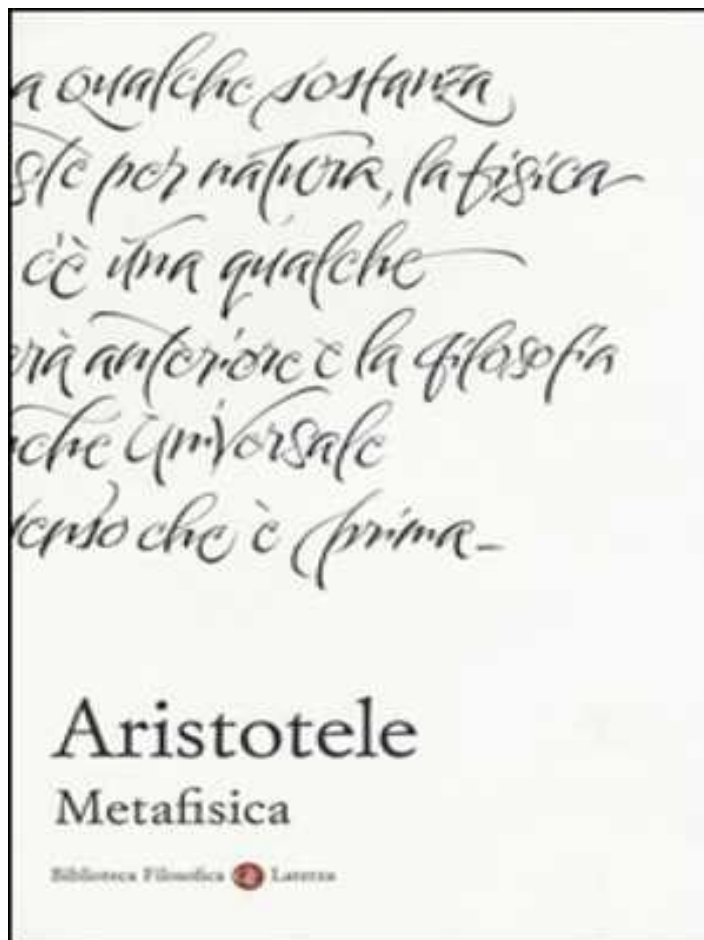 a qualche sostanza
ste per natura, la fisica
c'è una qualche
rà anteriore è la filosofia
che universale
senso che è prima
Aristotele
Metafisica
Biblioteca Filosofica Laterza